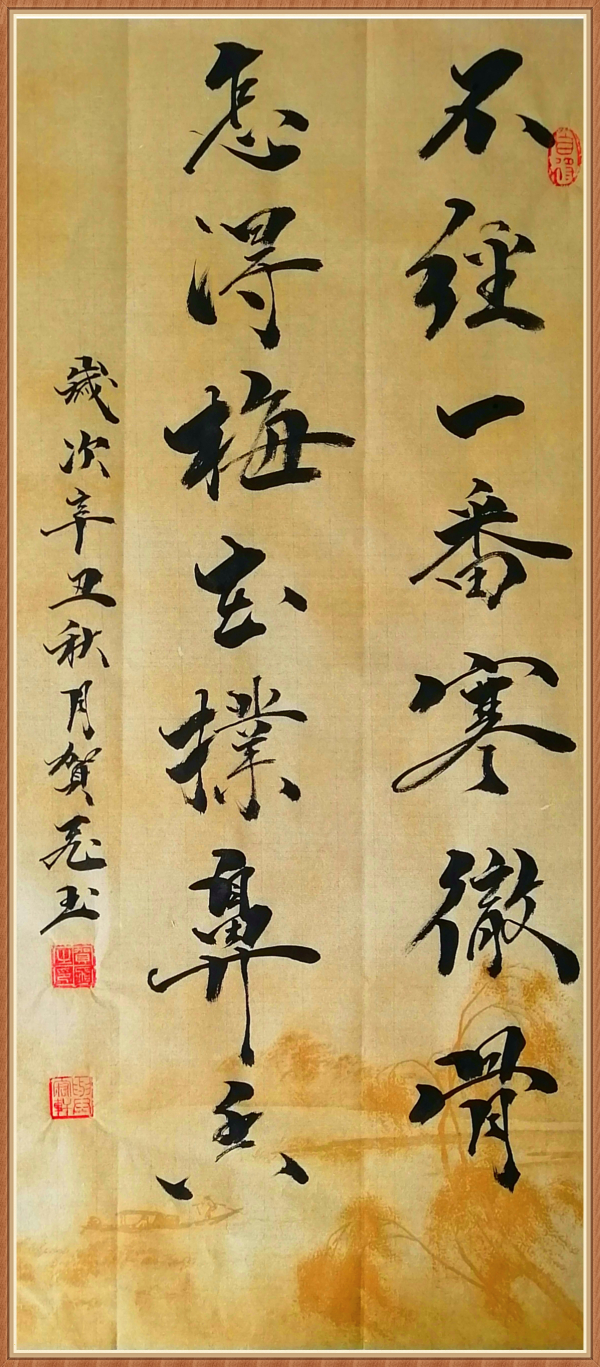 不經一番寒徹骨
怎得梅花撲鼻香
歲次辛丑秋月賀飛玉